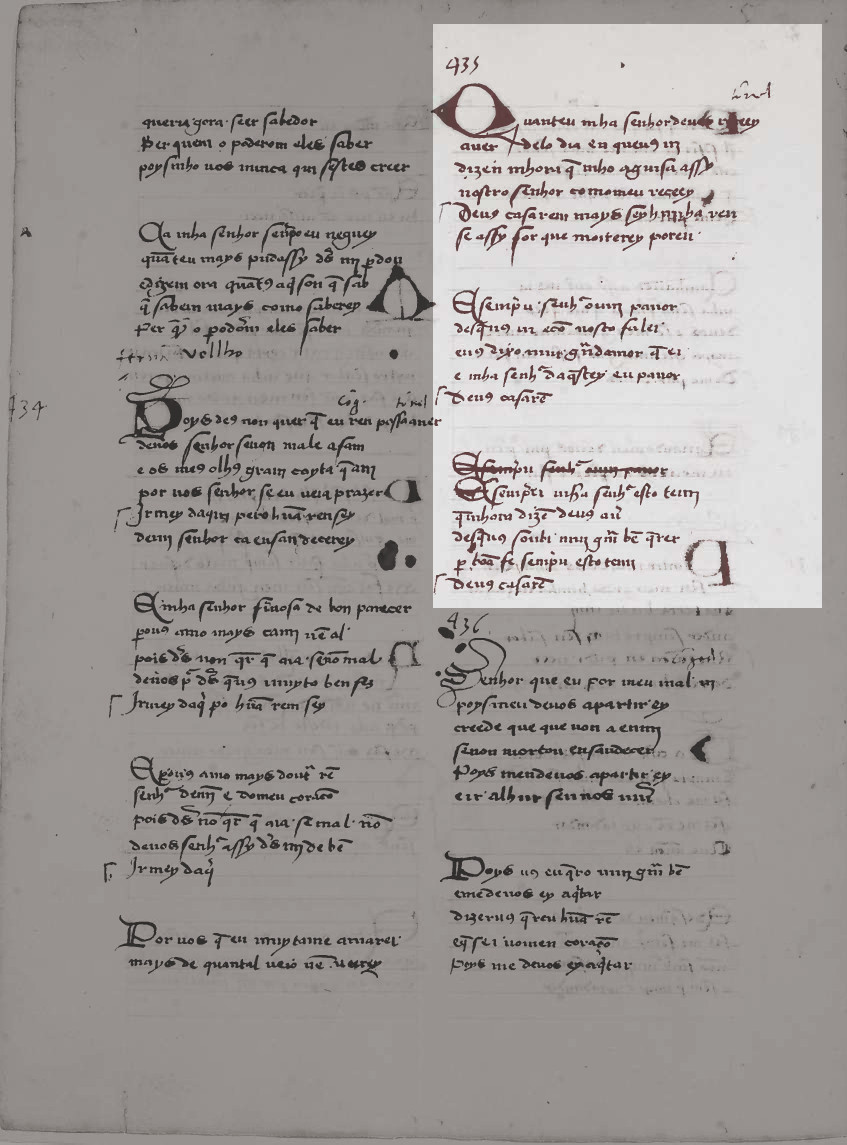 querria gora seer sabedor
Per quem o poderom eles saber
poys inho uos nunca qui sestes creer
Ca mha senhor senpre eu neguey
quãteu mays pudassy ds mi pdou
edizem ora quãt9 aq son q̃ sab
q̃ sabem mays como saberey
Per q̃ o poderom eles saber
vellho
434
Poys de9 non quer q̃ eu ren possa auer
deuos senhor senon male afam
e os me9 olh9 gram coyta q̃ am
por uos senhor se eu ueia prazer
Jrmey daqui pero hũa ren sey
demi senhor ca ensandecerey
E mha senhor fremosa de bon parecer
pero u9 amo mays cami nẽ al
pois ds non qr q̃ aia senõ mal
deuos p ds q̃ u9 muyto ben fez
Jrmey daq̃ po hũa rem sey
E pou9 amo mays doutra rẽ
senhor demi e domeu coraçõ
pois ds nõ qr q̃ aia se mal nõ
deuos senhor assy ds mi de bẽ
Jrmey daq̃
Por uos q̃ eu muytame amarei
mays de quantal ueio nẽ ueerey
435
Quanteu mha senhor deuos receey
auer delo dia en que u9 ui
dizen mhora q̃ mho aguisa assy
nostro senhor como meu receey
Deu9 casarem mays seyhunha ren
se assy for que moirerey poren
E sempru senhor ouui pauor
desq̃ u9 ui e cõ uosco falei
eu9 dixo mui grãdamor q̃ ei
e mha senhor daqstey eu pauor
Deu9 casarẽ
E sempru senhor ouui pauor
E sempreu mha senhor esto temi
q̃mhora dizẽ deu9 auer
desq̃ u9 soubi mui grã bẽ q̃rer
p boa fe sempru esto temi
Deu9 casarẽ
436
Senhor que eu por meu mal ui
poys meu deuos apartir ey
creede que que non a en mi
senon morte ou ensandecer
Poys mendeuos apartir ey
e ir alhur sen uos uiuer
Poys u9 eu q̃ro mui grã bẽ
eme deuos ey aqitar
dizeru9 q̃reu hũa rẽ
eq̃ sei no meu coraçõ
Poys me deuos ey aqitar